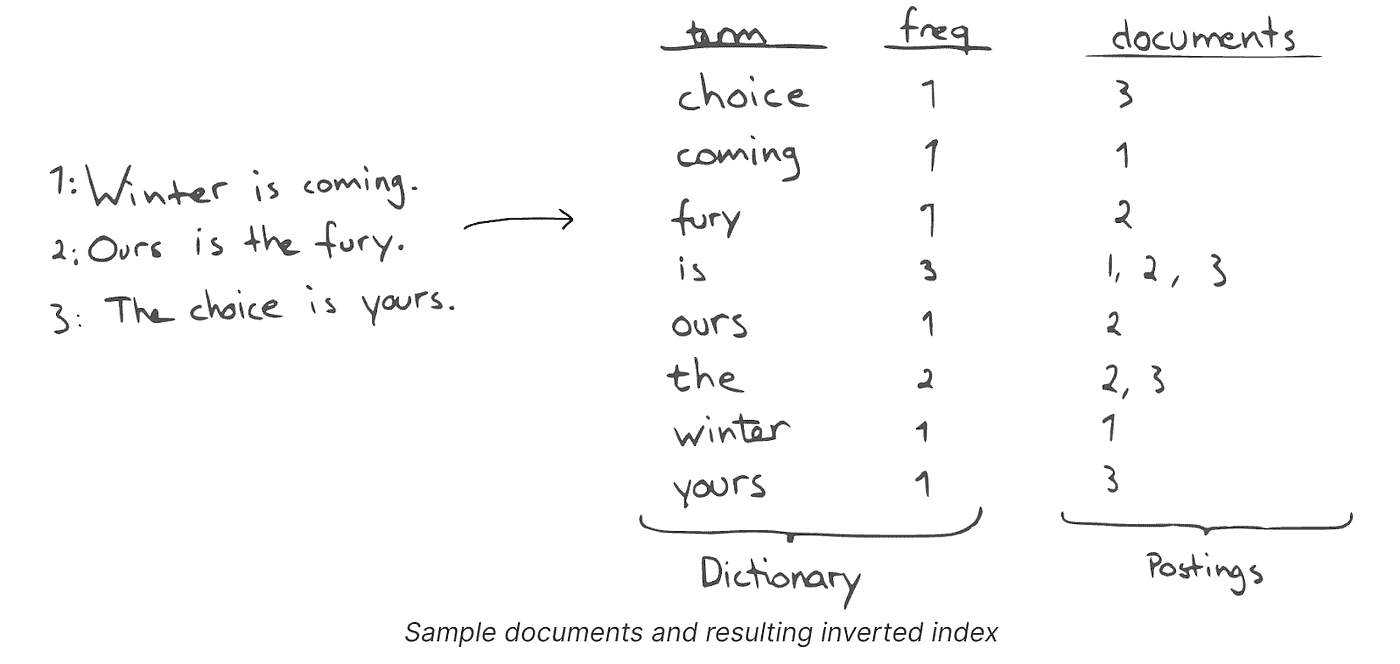 1: Winter is coming.
2: Ours is the fury.
3: The choice is yours.
term freq documents
choice 1 3
coming 1 1
fury 1 2
is 3 1, 2, 3
ours 1 2
the 2 2, 3
winter 1 1
yours 1 3
Dictionary Postings
Sample documents and resulting inverted index